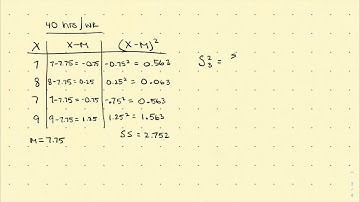 40 hrs/wk
X X-M (X-M)²
7 7-7.75=-0.75 -0.75²=0.563
8 8-7.75=0.25 0.25²=0.063
7 7-7.75=-0.75 -.75²=0.563
9 9-7.75=1.25 1.25²=1.563
M=7.75 SS=2.752
S₃²=